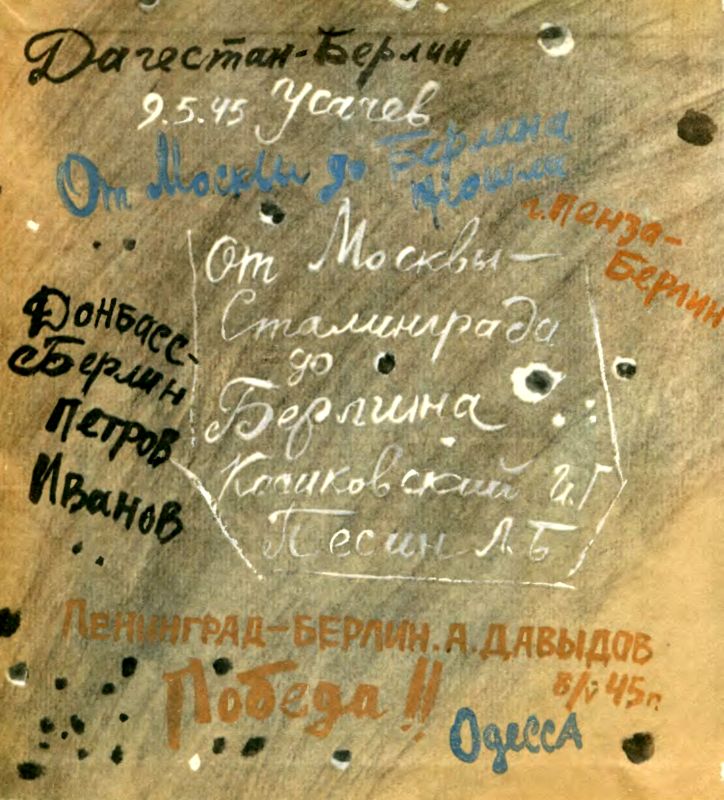 Дагестан-Берлин
9.5.45 Усачев
От Москвы до Берлина
дошли
г. Пенза-
Берлин
От Москвы-
Сталинграда
до
Берлина
Косиковский И.Г
Песин Л.Б
Донбасс-
Берлин
Петров
Иванов
ЛЕНИНГРАД-БЕРЛИН. А. ДАВЫДОВ
8/V 45 г.
Победа!!
Одесса